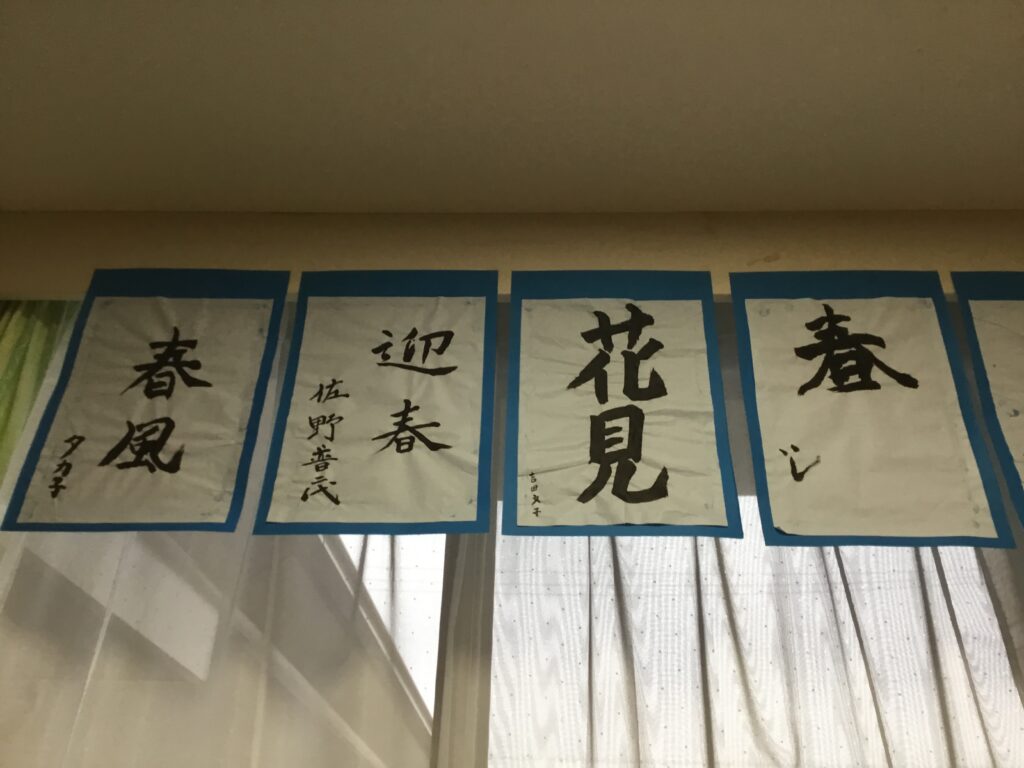 春風
タカ子
迎春
佐野普茂
花見
吉田文子
春